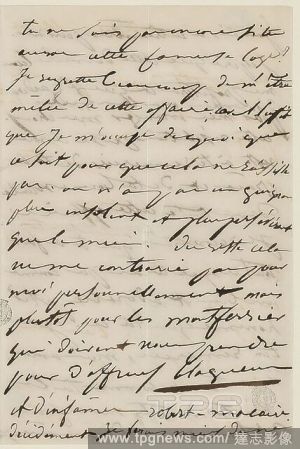 tu ne sais pas encore si te
aurons cette fameuse loge?
Je regrette beaucoup de m'être
mêlée de cette affaire, car il suffit
que Je m'occupe de quoi que
ce soit pour que cela ne réussisse
pas. on n'a pas un guignon
plus insolent et plus persistant
que le mien. Du reste cela
ne me contrarie pas pour
moi personnellement mais
plutôt pour les montferrier
qui doivent nous prendre
pour d'affreux blagueurs
et d'infâmes robert-macaire
décidément Je
TPG
www.tpgnews.com/達志影像